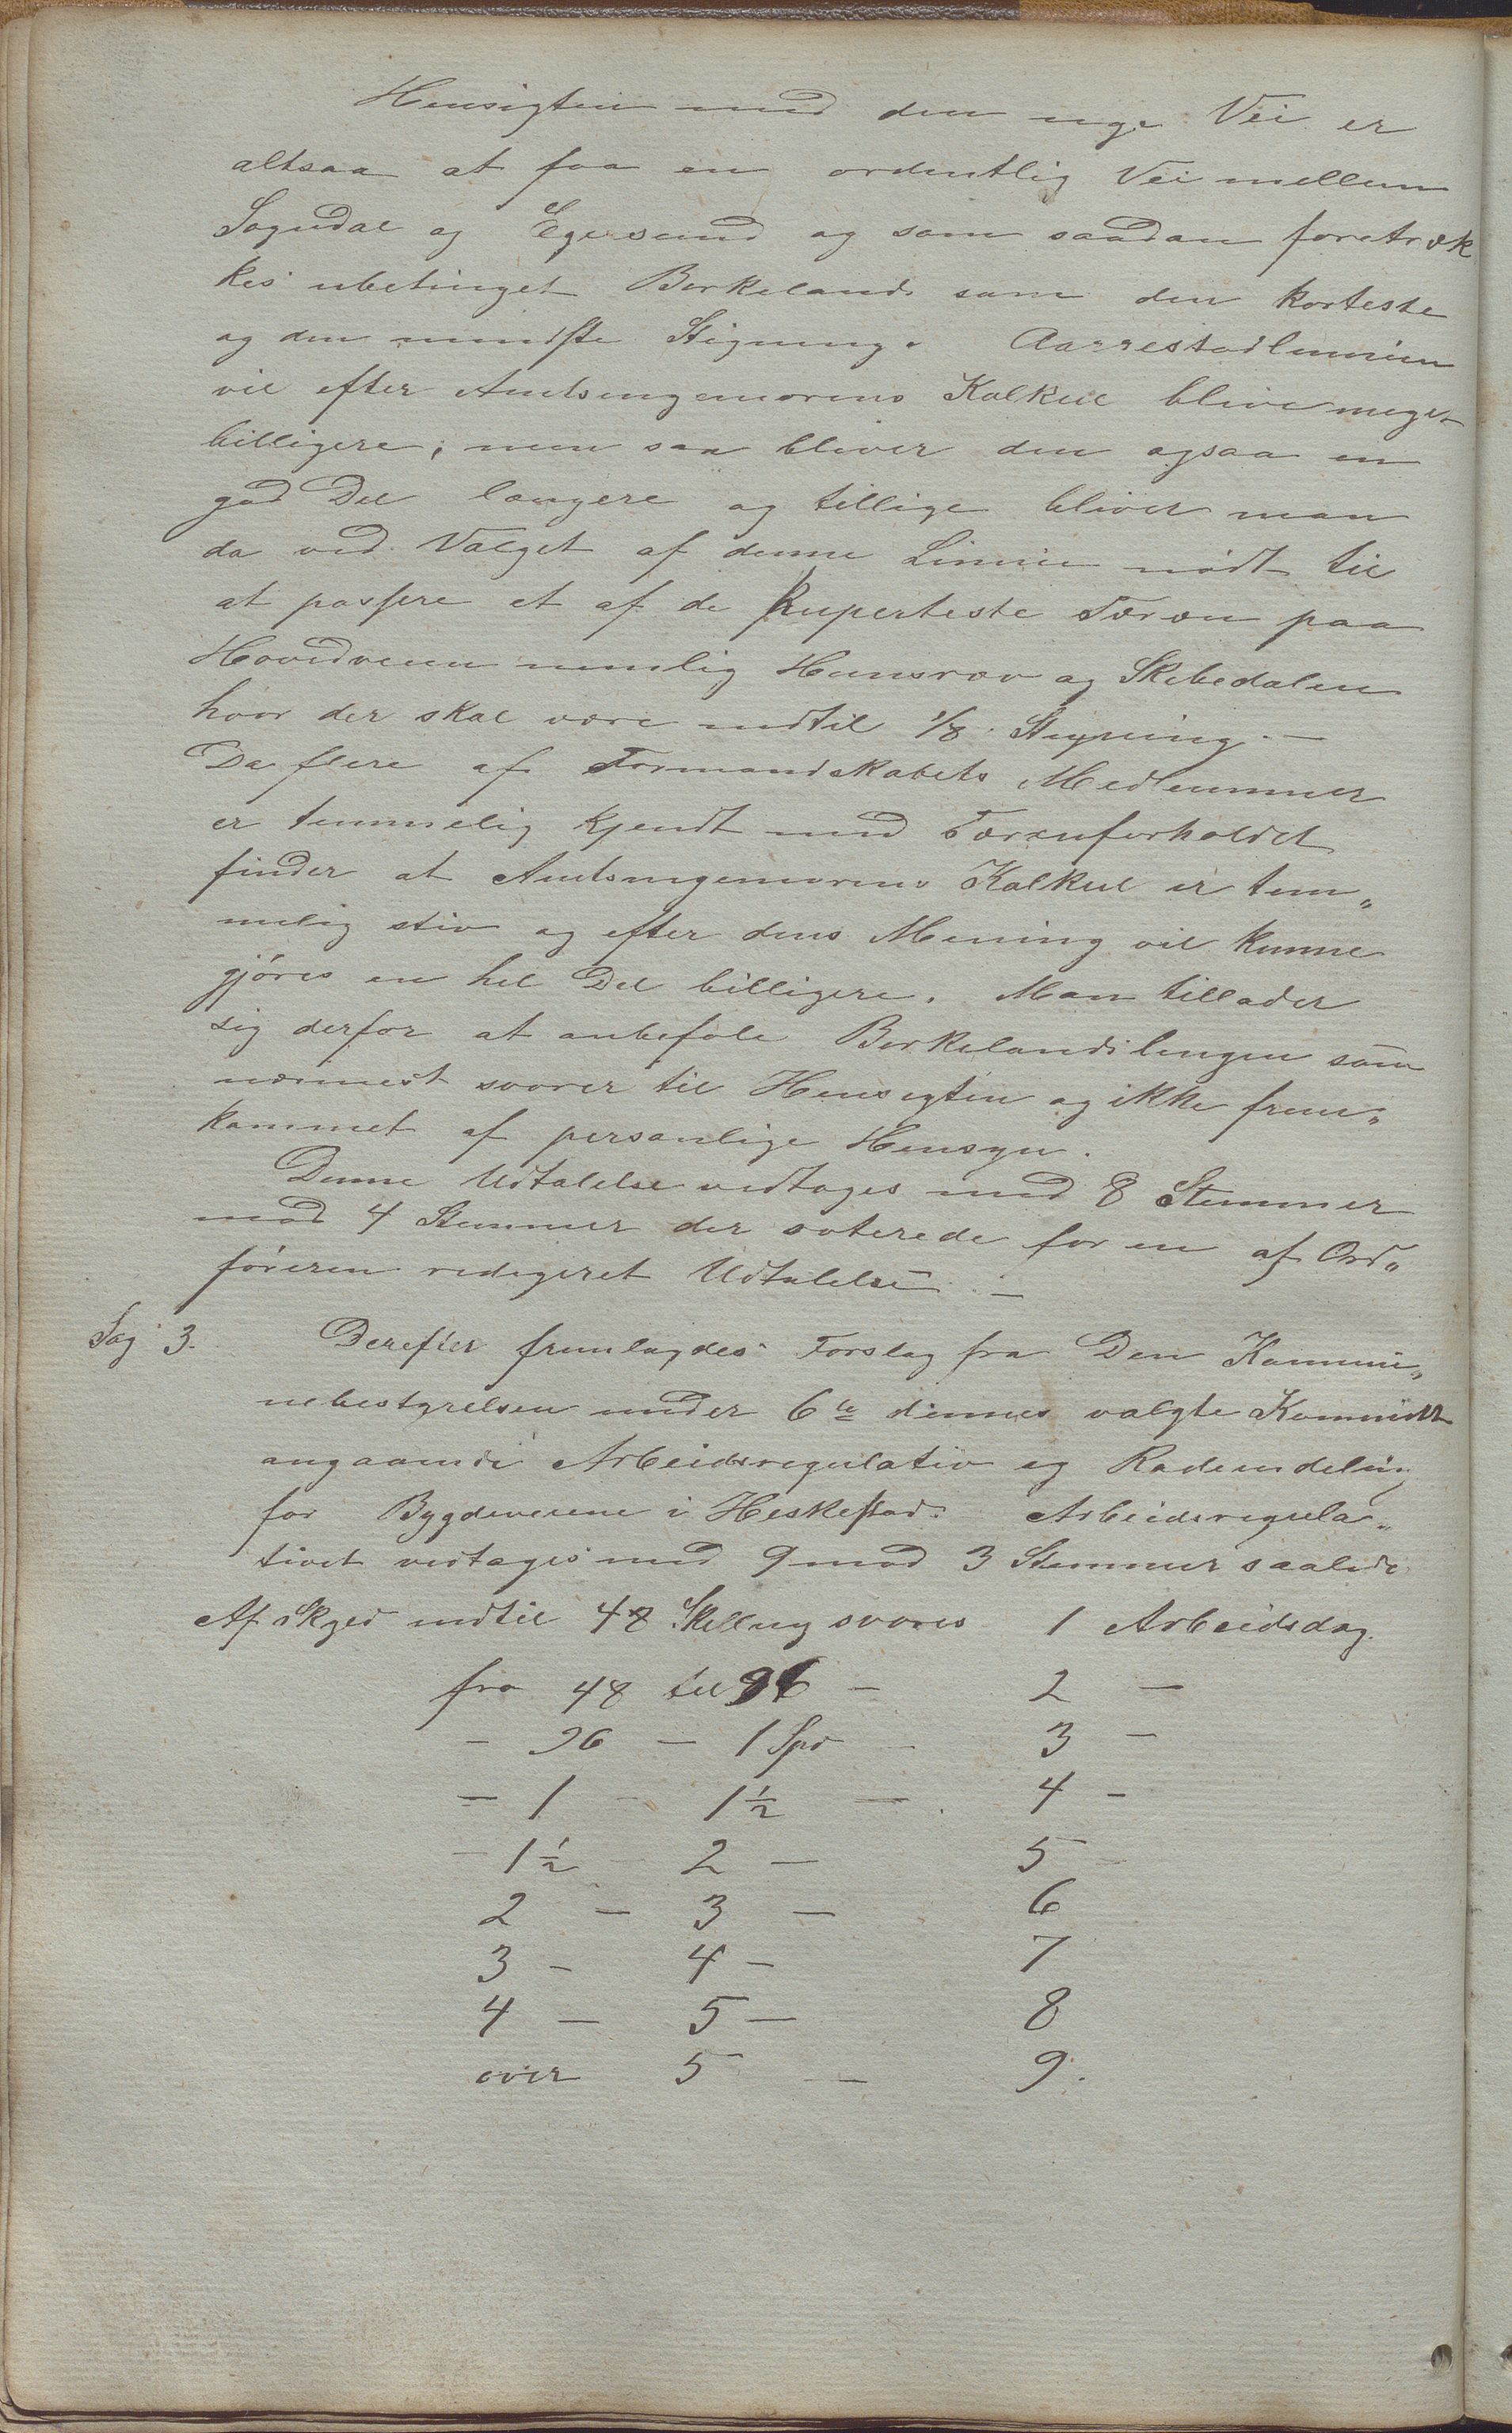 Hensigten med den nye Vei er
altsaa at faa en ordentlig Vei mellem
Sogndal og Egersund og som saadan foretræk
kes ubetinget Birkelands som den korteste
og den mindste Stigning. Aarrestadlinnien
vil efter Amtsingeniørens Kalkul blive meget
billigere; men saa bliver den ogsaa en
god Del længere og tillige bliver man
da ved Valget af denne Linnie nødt til
at passere et af de kuperteste Tæræn paa
Hovedveien nemlig Hunsrøv og Skibedalen
hvor der skal være indtil 1/8 Stigning. —
Da flere af Formandskabets Medlemmer
er temmelig kjendt med Tærænforholdet
finder at Amtsingeniørens Kalkul er tem„
melig stiv og efter dens Mening vil kunne
gjøres en hel Del billigere. Man tillader
sig derfor at anbefale Birkelandslinyen som
nærmest svarer til Hensigten og ikke frem„
kommet af personlige Hensyn.
Denne Udtalelse vedtages med 8 Stemmer
mod 4 Stemmer der voterede for en af Ord„
føreren redigeret Udtalelse. —
Sag 3. Derefter fremlagdes Forslag fra Den Kommu„
nebestyrelsen under 6te dennes valgte Kommitte
angaaende Arbeidsregulativ og Rodeindeling
for Bygdeveiene i Heskestad. Arbeidsregula„
tivet vedtages med 9 mod 3 Stemmer saalede
Af Skyld indtil 48 Skilling svares 1 Arbeidsdag.
fra 48 til 96 — 2 —
— 96 — 1 Spd — 3 —
— 1 — 1½ — 4 —
— 1½ — 2 — 5 —
2 — 3 — 6
3 — 4 — 7
4 — 5 — 8
over 5 — 9.